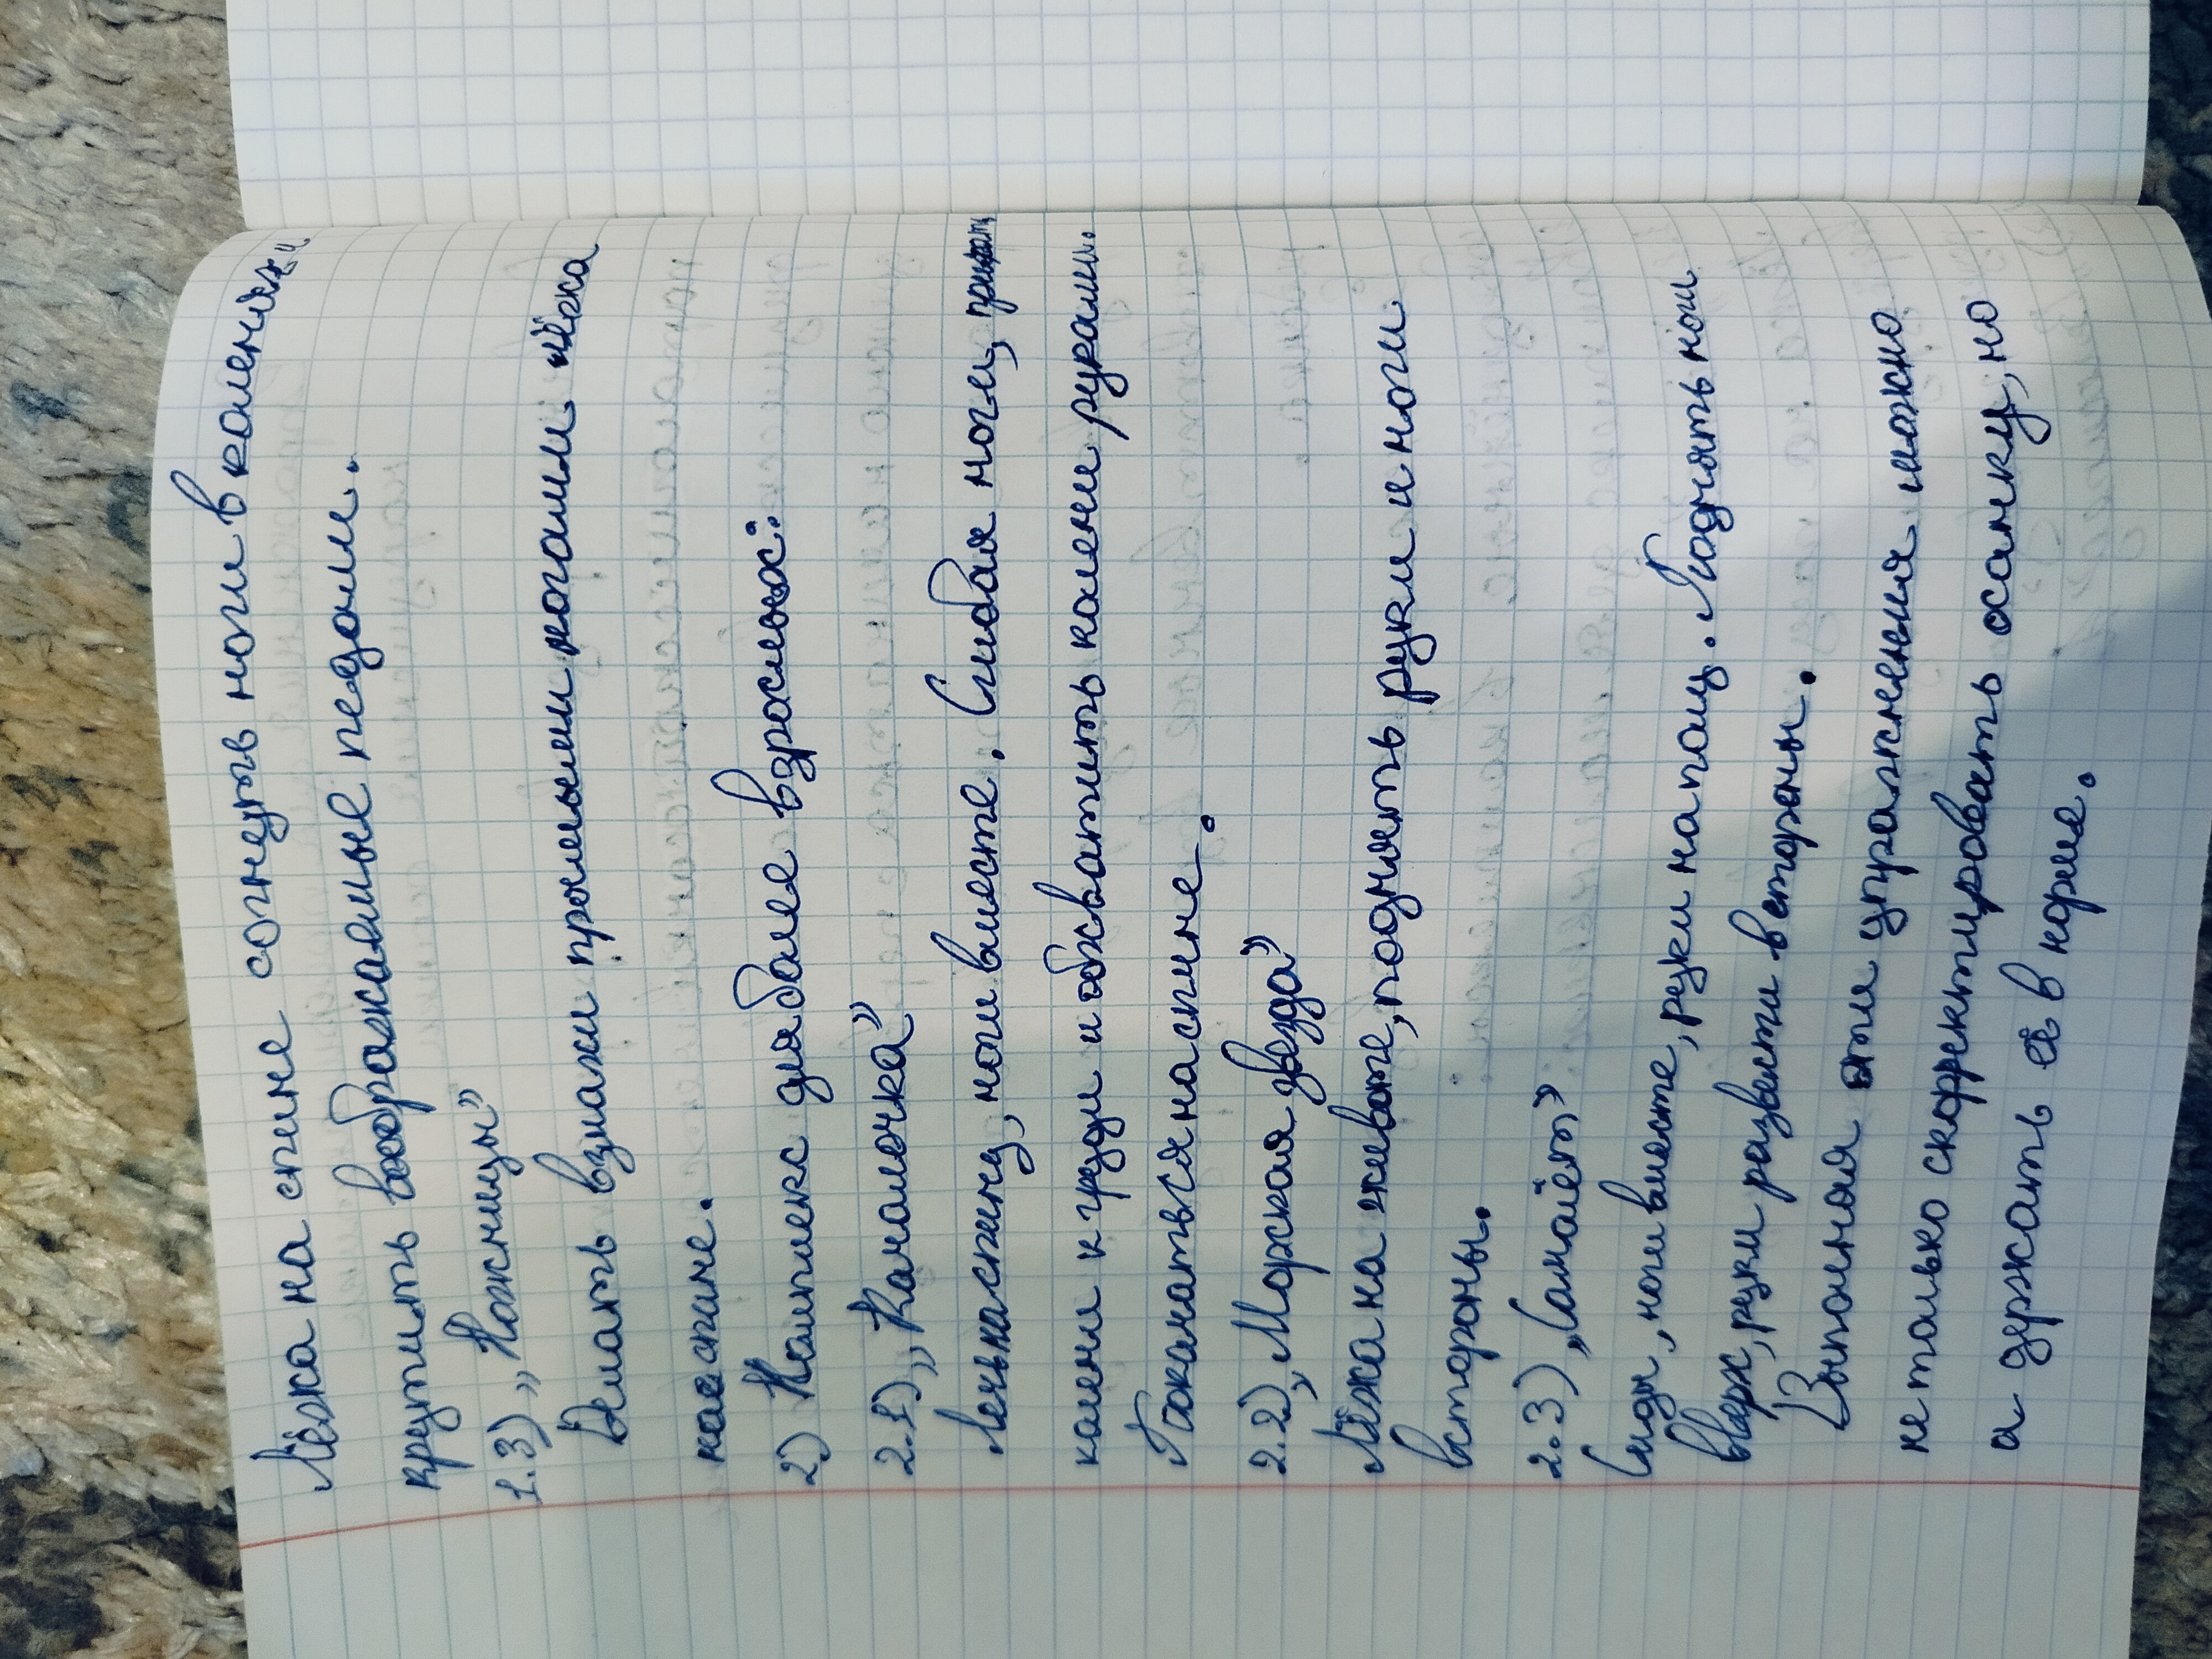 Лёжа на спине согнуть ноги в коленях и
крутить воображаемые педали.
1.3) „Ножницы”
Делать взмахи прямыми ногами лёжа
на спине.
2) Комплекс для более взрослых:
2.1) „Качалочка”
Лечь на спину, ноги вместе. Сгибая ноги, прижать
колени к груди и обхватить колени руками.
Покачаться на спине.
2.2) „Морская звезда”
Лёжа на животе, поднять руки и ноги
в стороны.
2.3) „Самолёт”
Сидя, ноги вместе, руки на полу. Поднять ноги
вверх, руки развести в стороны.
Выполняя эти упражнения можно
не только скорректировать осанку, но
а держать её в норме.